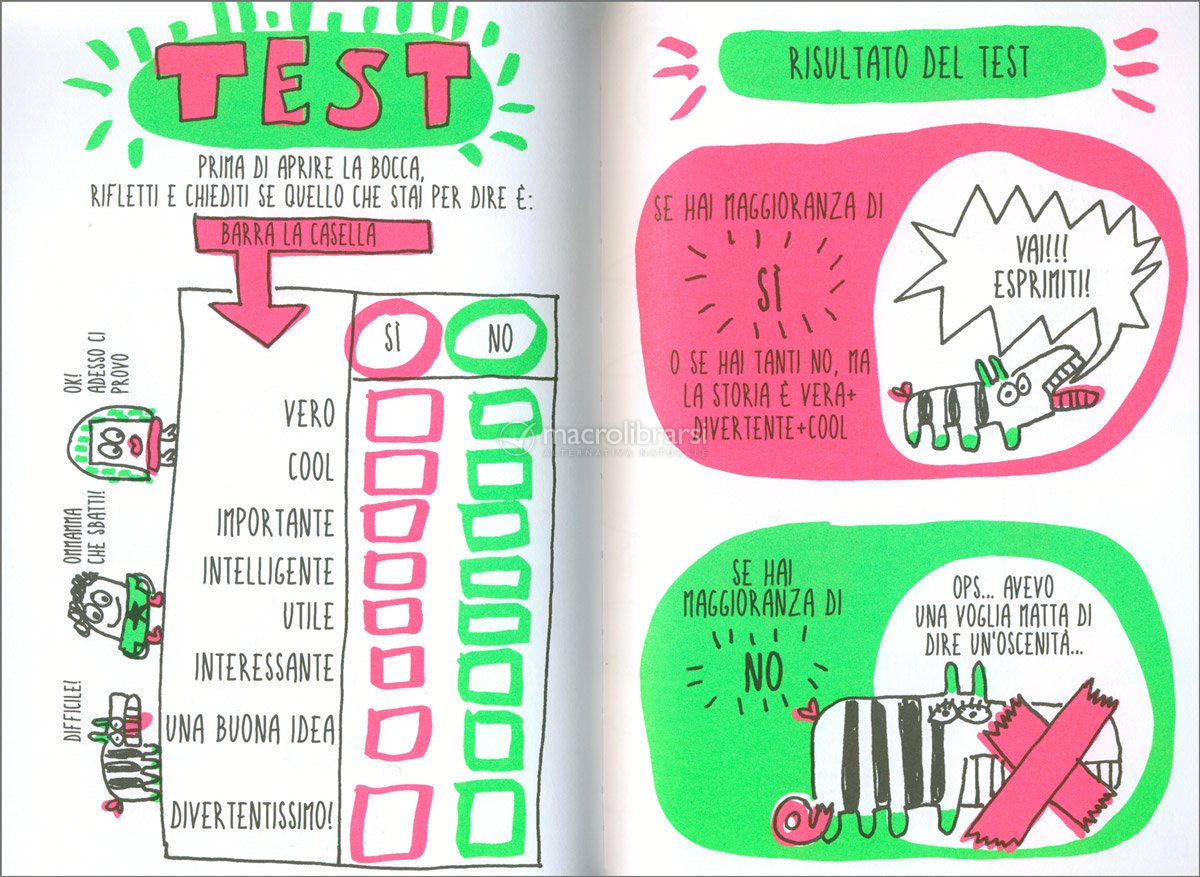 TEST
PRIMA DI APRIRE LA BOCCA,
RIFLETTI E CHIEDITI SE QUELLO CHE STAI PER DIRE È:
BARRA LA CASELLA
SÌ NO
OK!
ADESSO CI
PROVO
VERO
COOL
OMMAMMA
CHE SBATTI!
IMPORTANTE
INTELLIGENTE
UTILE
INTERESSANTE
DIFFICILE!
UNA BUONA IDEA
DIVERTENTISSIMO!
RISULTATO DEL TEST
SE HAI MAGGIORANZA DI
SÌ
O SE HAI TANTI NO, MA
LA STORIA È VERA+
DIVERTENTE+COOL
VAI!!!
ESPRIMITI!
SE HAI
MAGGIORANZA DI
NO
OPS... AVEVO
UNA VOGLIA MATTA DI
DIRE UN'OSCENITÀ...
macrolibrarsi
ALTERNATIVA NATURALE